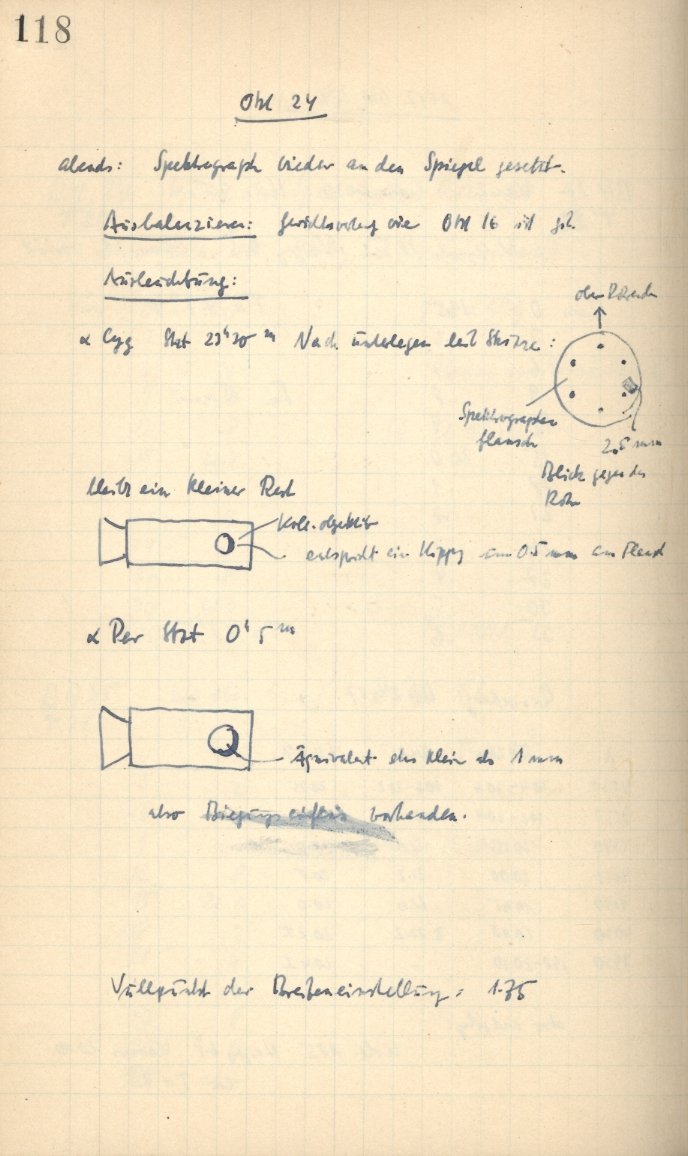 118
Okt 24
abends: Spektrograph wieder an den Spiegel gesetzt.
Ausbalanzieren: wie Okt 16 ist gut
Ausleuchtung:
α Cyg Stzt 23ʰ30ᵐ Nach unterlegen laut Skizze:
oben
Spektrographen
flansch
2,5 mm
Blick gegen das
Rohr
bleibt ein kleiner Rest
Koll. objektiv
entspricht ein 0.5 mm am
α Per Stzt 0ʰ 5ᵐ
Äquivalent etwas klein als 1 mm
also vorhanden.
Nullpunkt der Breiteneinstellung = 1.75